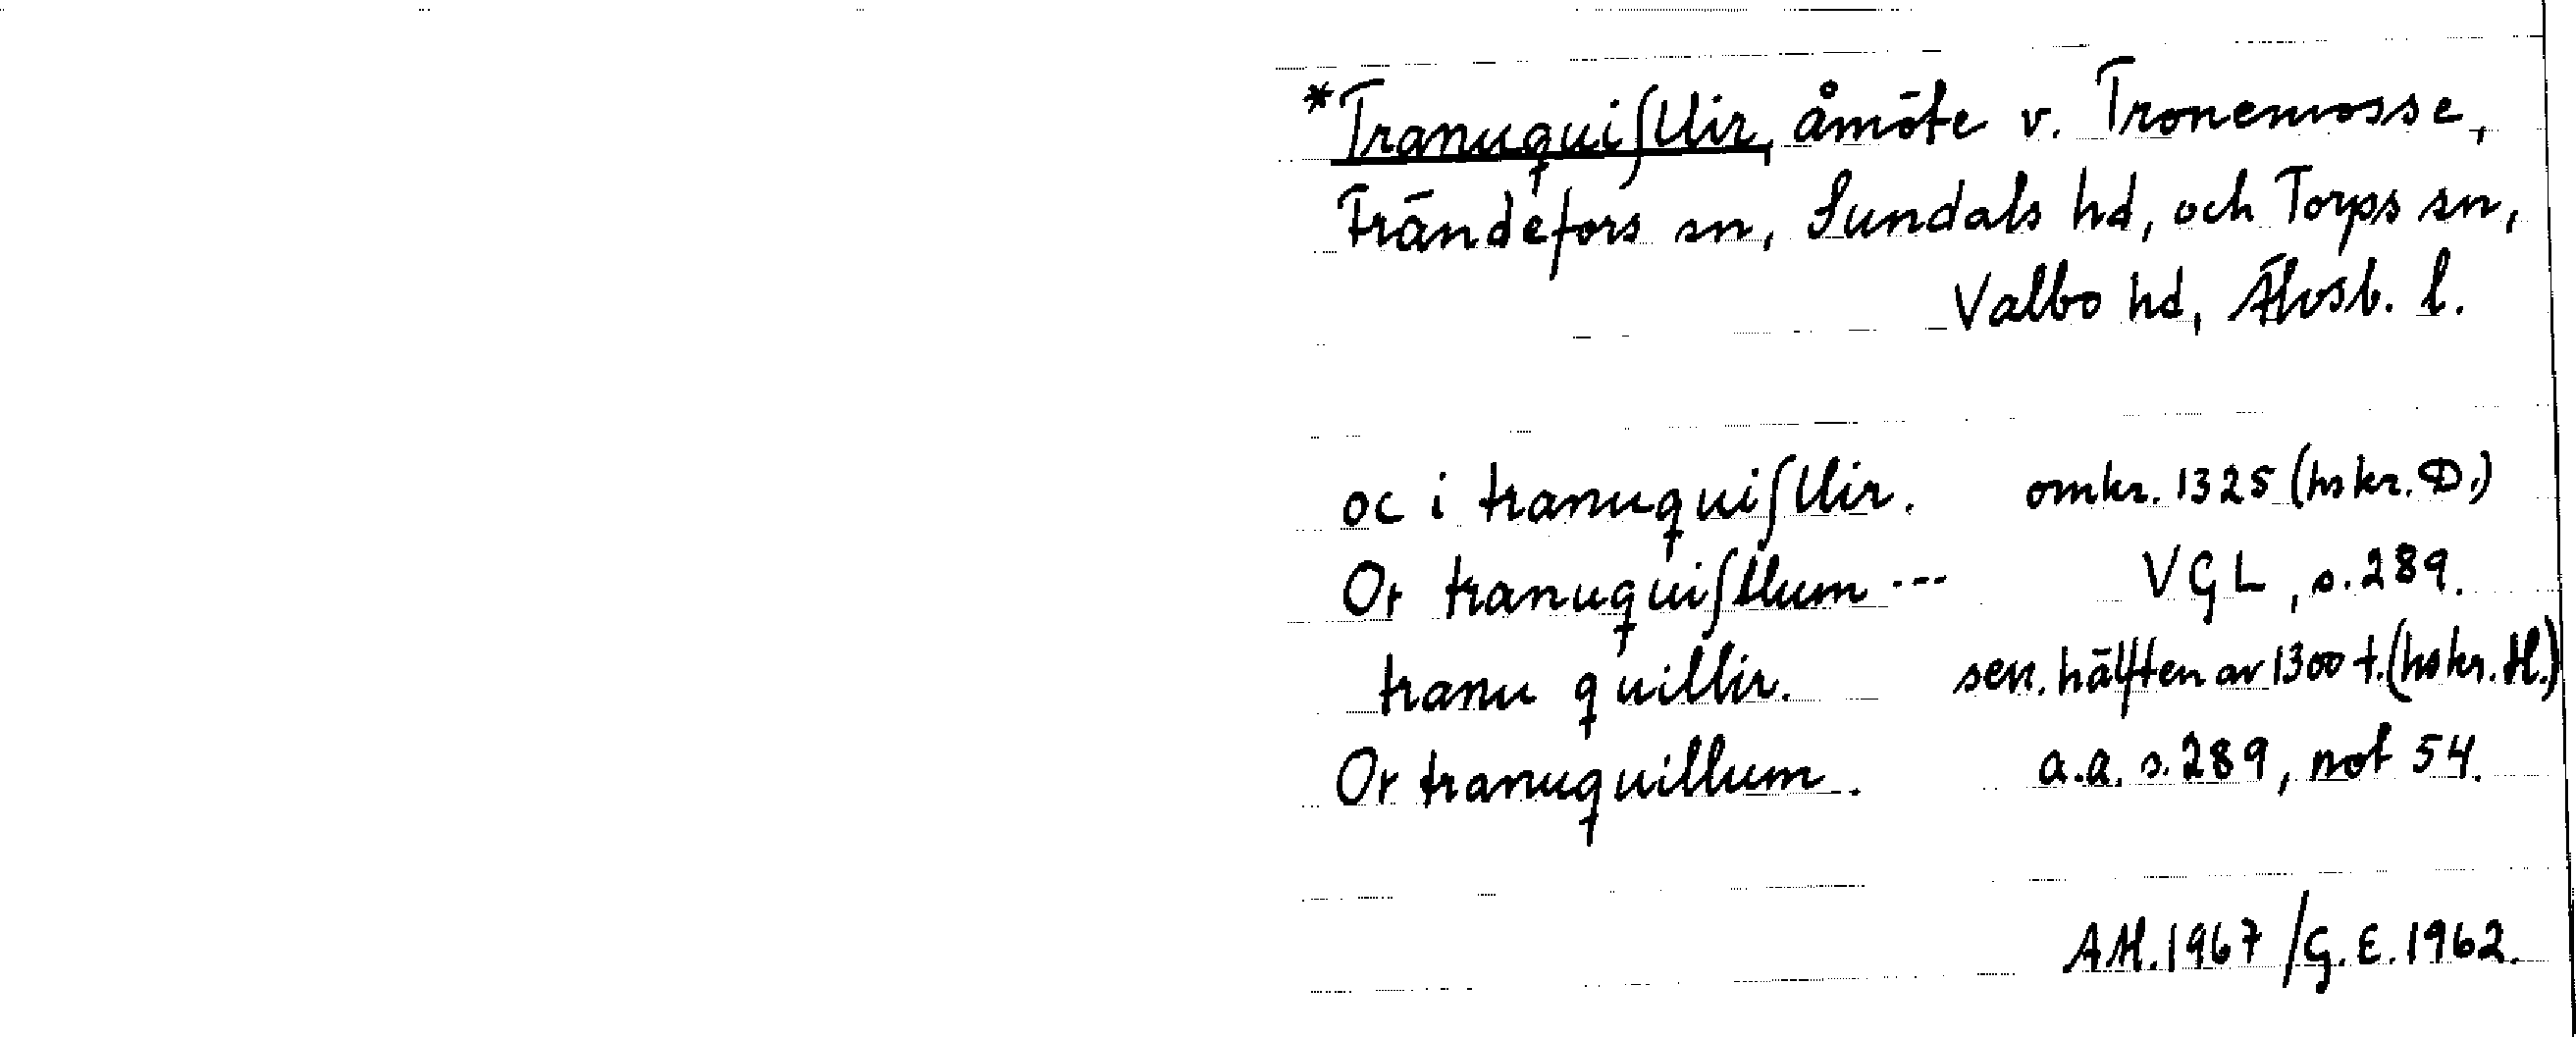 *Tranuquiſllir, åmöte v. Tronemosse,
Frändefors sn, Sundals hd, och Torps sn,
Valbo hd, Älvsb. l.
oc i tranuquiſllir. omkr. 1325 (hskr. D.)
Or tranuquiſllum --- VGL, s. 289.
tranu quillir. sen. hälften av 1300 t. (hskr. H.)
Or tranuquillum. a.a. s. 289, not 54.
A.H. 1967 / G.E. 1962.